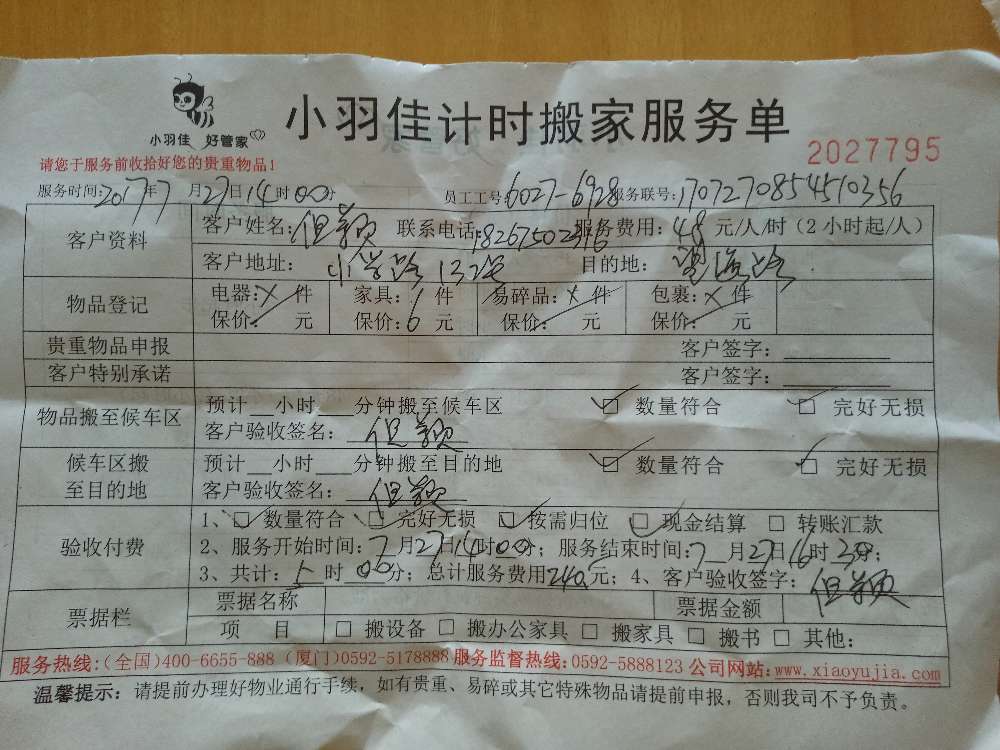 小羽佳 好管家
小羽佳计时搬家服务单
2027795
请您于服务前收拾好您的贵重物品!
服务时间:2017年7月27日14时00分 员工工号:6027-6928 服务联号:170727085451０356
客户资料 客户姓名:但颖 联系电话:18267502316 服务费用:48元/人/时(2小时起/人)
客户地址: 小学路132号 目的地: 望海路
物品登记 电器:× 件 家具: 1 件 易碎品:× 件 包裹:× 件
保价: 元 保价:6 元 保价: 元 保价: 元
贵重物品申报 客户签字:
客户特别承诺 客户签字:
物品搬至候车区 预计__小时___分钟搬至候车区 ☑ 数量符合 ☑ 完好无损
客户验收签名: 但颖
候车区搬至目的地 预计__小时___分钟搬至目的地 ☑ 数量符合 ☑ 完好无损
客户验收签名: 但颖
验收付费 1、☑ 数量符合 ☑ 完好无损 ☑ 按需归位 ☑ 现金结算 □ 转账汇款
2、服务开始时间:7月27日14时00分;服务结束时间:7月27日16时30分;
3、共计:5时00分;总计服务费用240元;4、客户验收签字:但颖
票据栏 票据名称 票据金额
项 目 □ 搬设备 □ 搬办公家具 □ 搬家具 □ 搬书 □ 其他:
服务热线:(全国)400-6655-888 (厦门)0592-5178888 服务监督热线:0592-5888123 公司网站:www.xiaoyujia.com
温馨提示:请提前办理好物业通行手续,如有贵重、易碎或其它特殊物品请提前申报,否则我司不予负责。